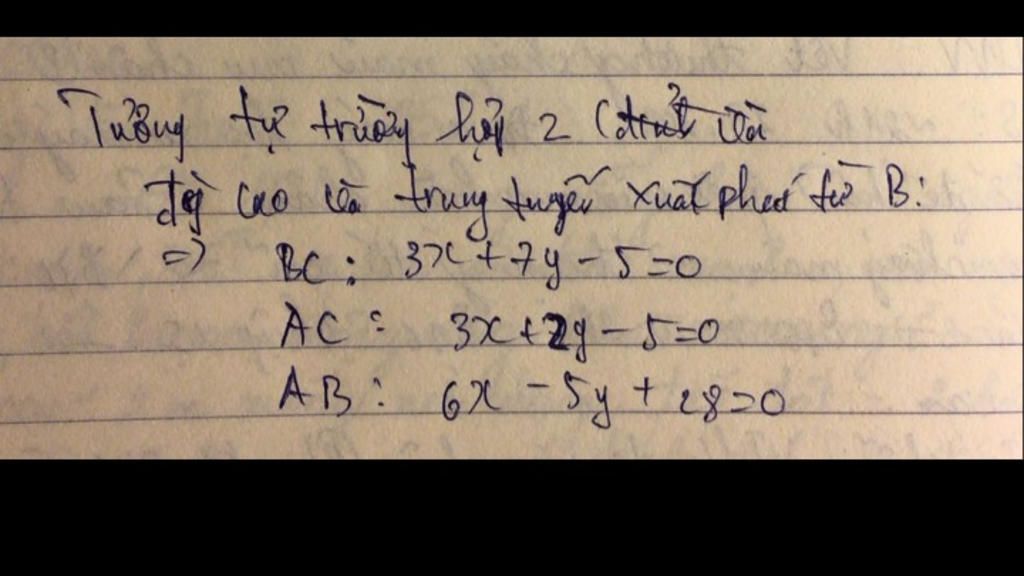 Tương tự trường hợp 2 (d1, d2 là
đg cao và trung tuyến xuất phát từ B:
=> BC: 3x + 7y - 5 = 0
AC: 3x + 2y - 5 = 0
AB: 6x - 5y + 28 = 0